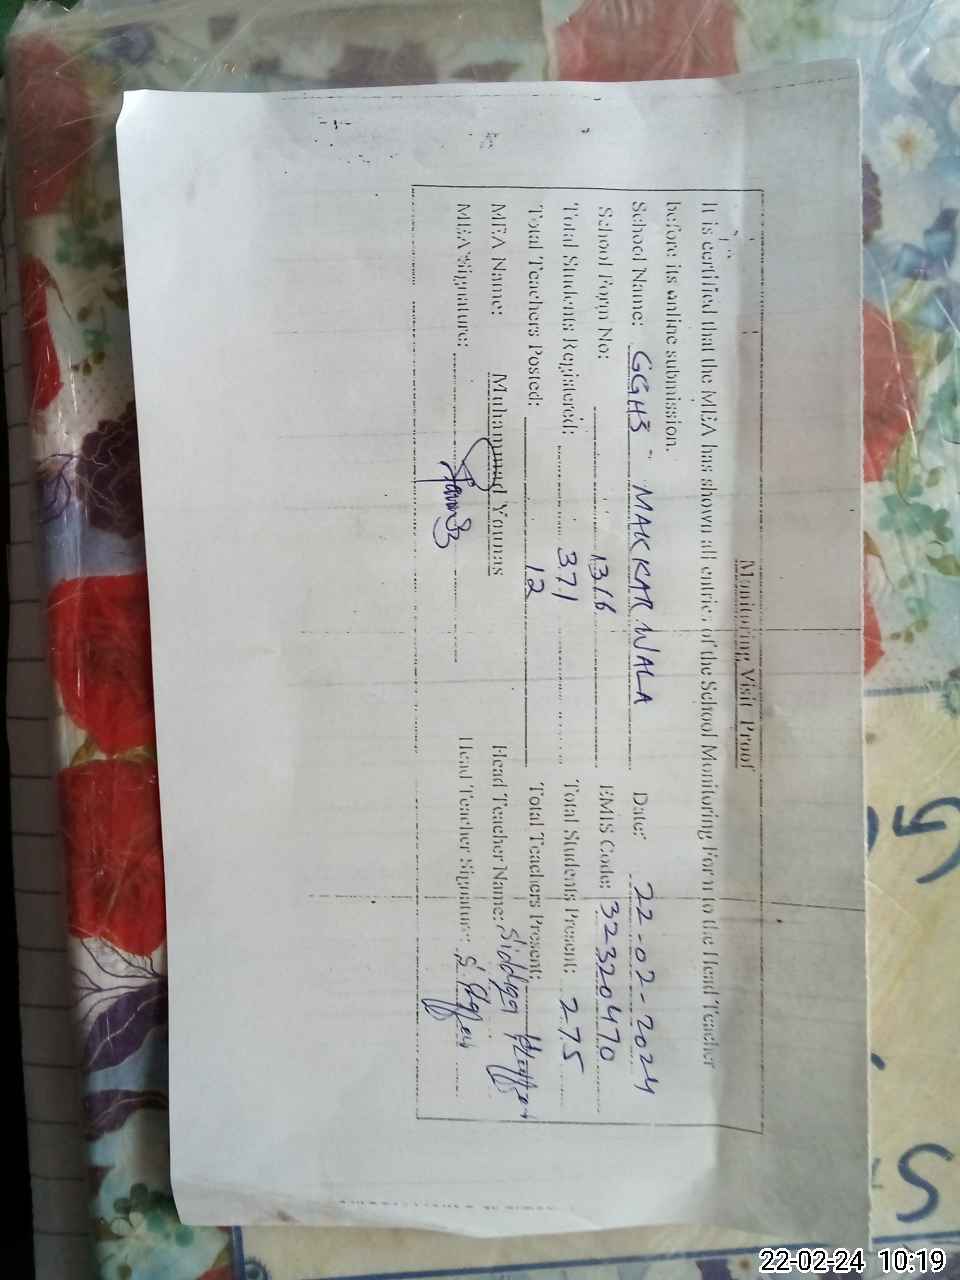 Monitoring Visit Proof
It is certified that the MEA has shown all entries of the School Monitoring Form to the Head Teacher
before its online submission.
School Name: GGHS - MAKKAR WALA Date: 22-02-2024
School Form No: 1316 EMIS Code: 32320470
Total Students Registered: 371 Total Students Present: 275
Total Teachers Posted: 12 Total Teachers Present:
MEA Name: Muhammad Younas Head Teacher Name: Siddiqa
MEA Signature: Head Teacher Signature: S.
22-02-24 10:19